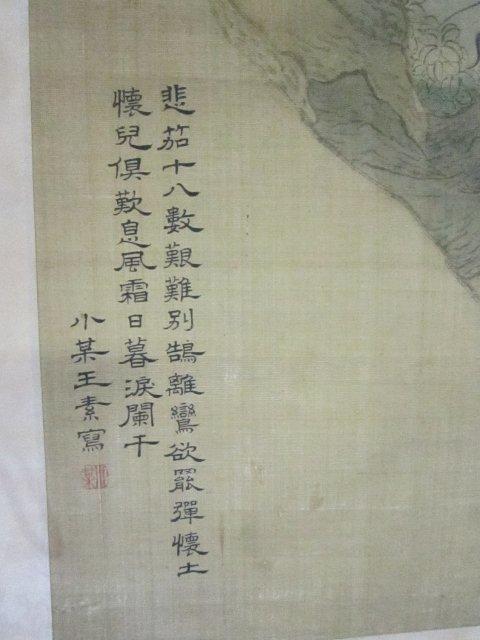 悲笳十八數艱難別鵠離鸞欲罷彈懷土
懷兒俱歎息風霜日暮淚闌干
小某王素寫